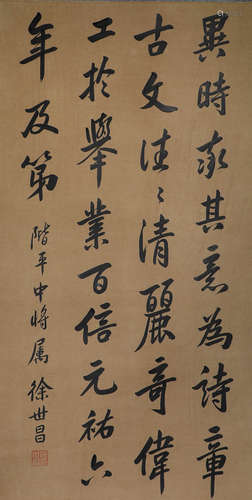 異時取其意為詩章
古文往〻清麗奇偉
工於舉業百倍元祐六
年及第
階平中將属
徐世昌